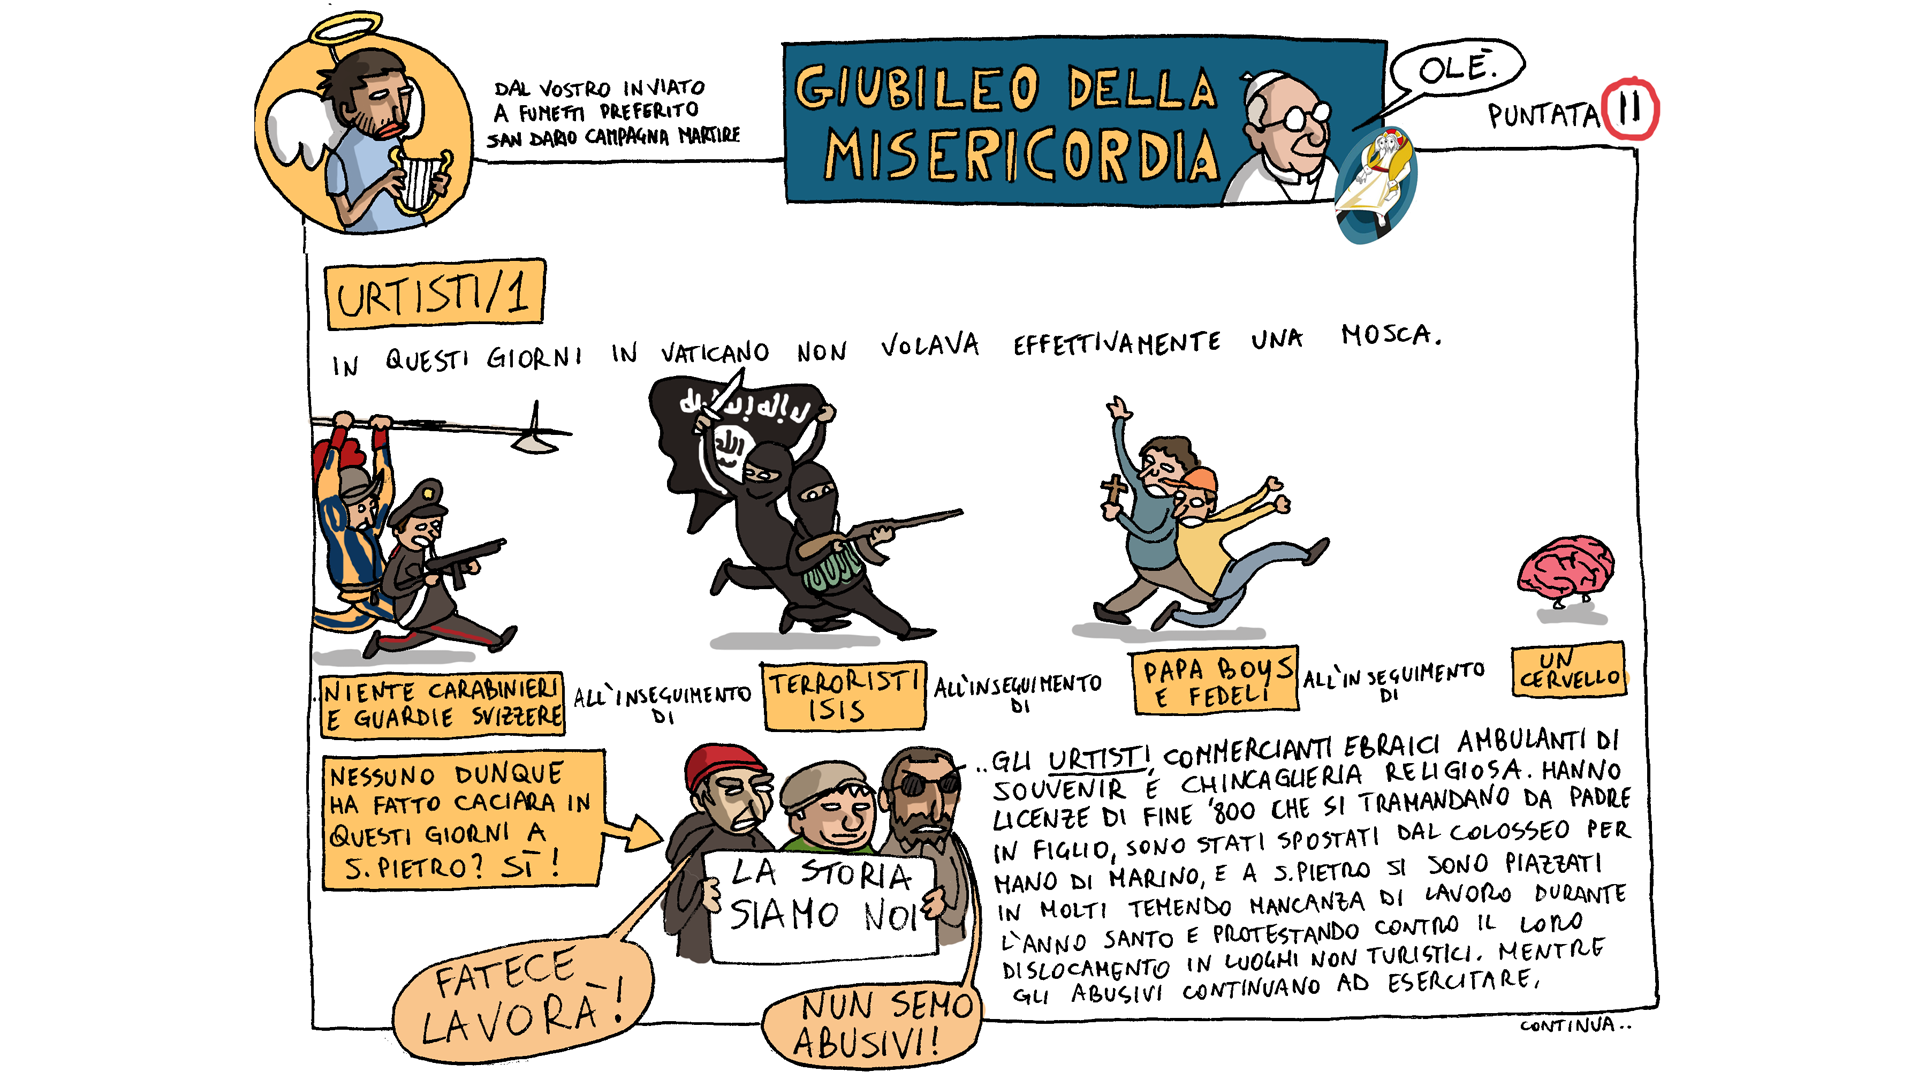 DAL VOSTRO INVIATO
A FUMETTI PREFERITO
SAN DARIO CAMPAGNA MARTIRE
GIUBILEO DELLA
MISERICORDIA
OLÈ.
PUNTATA 11
URTISTI/1
IN QUESTI GIORNI IN VATICANO NON VOLAVA EFFETTIVAMENTE UNA MOSCA.
..NIENTE CARABINIERI
E GUARDIE SVIZZERE
ALL'INSEGUIMENTO
DI
TERRORISTI
ISIS
ALL'INSEGUIMENTO
DI
PAPA BOYS
E FEDELI
ALL'INSEGUIMENTO
DI
UN
CERVELLO
NESSUNO DUNQUE
HA FATTO CACIARA IN
QUESTI GIORNI A
S. PIETRO? SÌ!
LA STORIA
SIAMO NOI
FATECE
LAVORÀ!
NUN SEMO
ABUSIVI!
..GLI URTISTI, COMMERCIANTI EBRAICI AMBULANTI DI
SOUVENIR E CHINCAGLIERIA RELIGIOSA. HANNO
LICENZE DI FINE '800 CHE SI TRAMANDANO DA PADRE
IN FIGLIO, SONO STATI SPOSTATI DAL COLOSSEO PER
MANO DI MARINO, E A S.PIETRO SI SONO PIAZZATI
IN MOLTI TEMENDO MANCANZA DI LAVORO DURANTE
L'ANNO SANTO E PROTESTANDO CONTRO IL LORO
DISLOCAMENTO IN LUOGHI NON TURISTICI. MENTRE
GLI ABUSIVI CONTINUANO AD ESERCITARE,
CONTINUA..